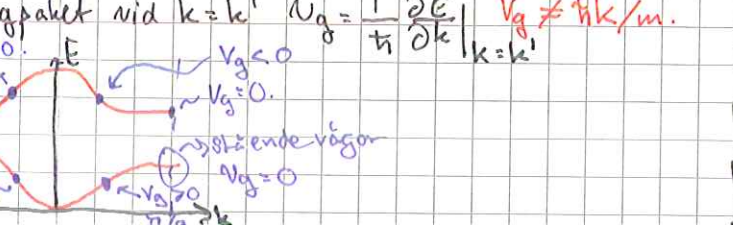 gpaket vid k = k' Vg = 1/ħ ∂E/∂k |k=k' Vg ≠ ħk/m.
0.
E
Vg < 0
~ Vg = 0.
stående vågor
Vg = 0
Vg > 0
k